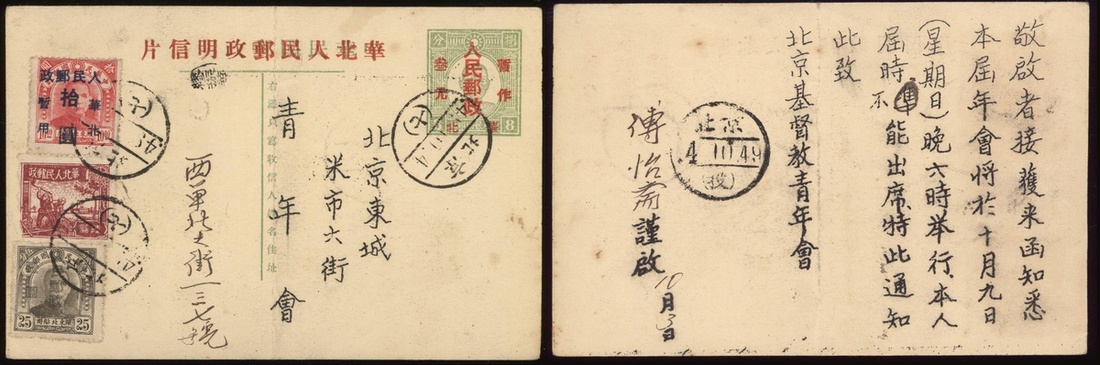 片信明政郵民人北華
分
捌
人民郵政
暫作
叁元
華北
8
右邊祇寫收信人姓名住址
人民郵政
華北
拾圓
暫用
華北人民郵政
25
25
北京東城
米市大街
青年會
西單北大街一三七號
北京
敬啟者接獲來函知悉
本屆年會將於十月九日
(星期日)晚六時举行.本人
屆時準不能出席特此通知
此致
北京基督教青年會
傅怡斋謹啟
10月3日
北京
4.10.49
(投)